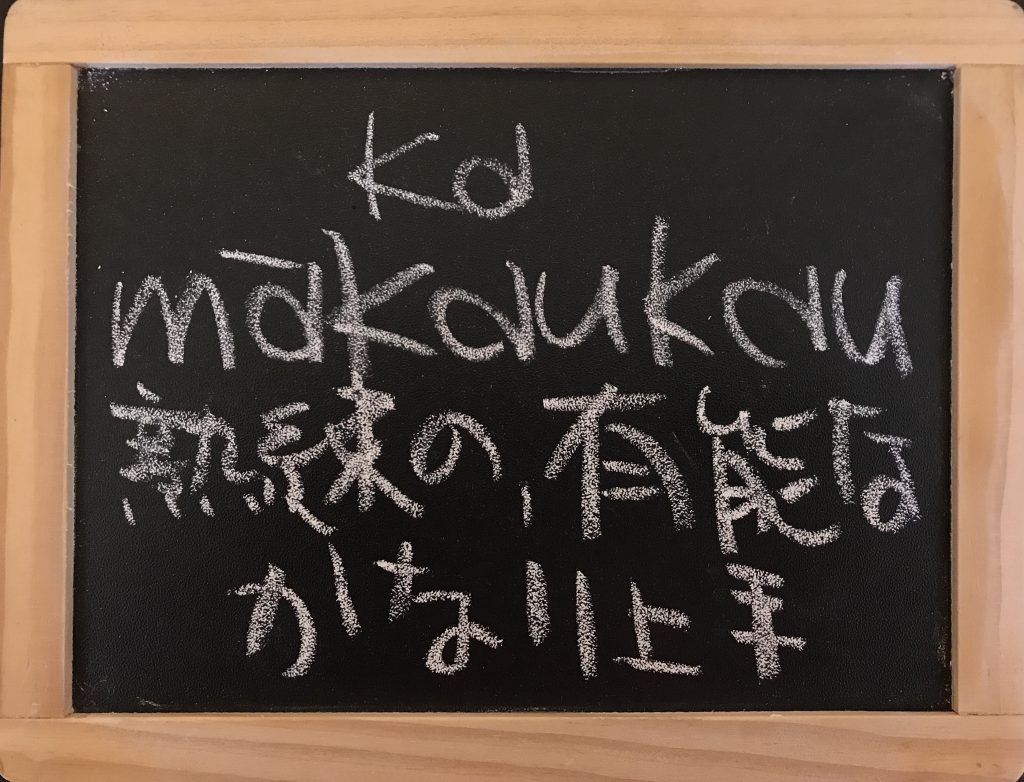 Ka
mākaukau
熟練の、有能な
かなり上手